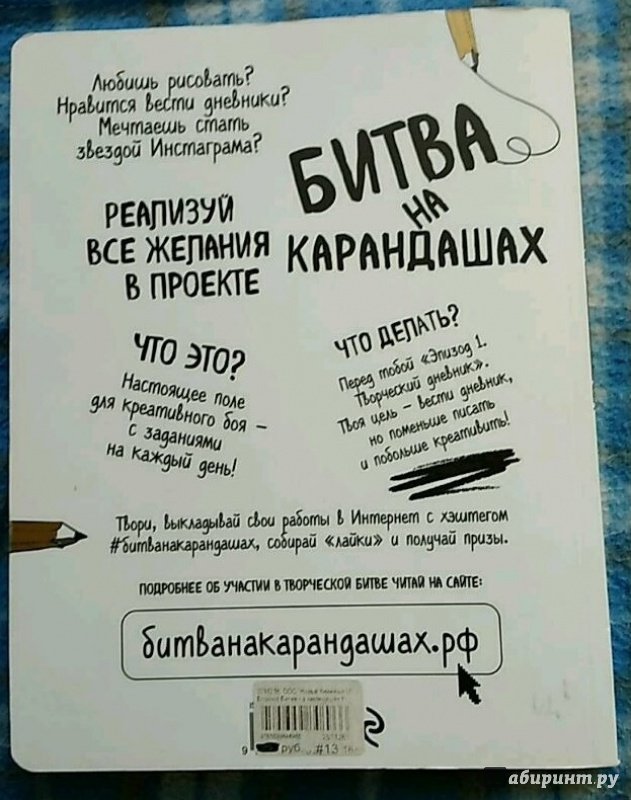 Любишь рисовать?
Нравится вести дневники?
Мечтаешь стать
звездой Инстаграма?
РЕАЛИЗУЙ
ВСЕ ЖЕЛАНИЯ
В ПРОЕКТЕ
БИТВА
НА
КАРАНДАШАХ
ЧТО ЭТО?
Настоящее поле
для креативного боя –
с заданиями
на каждый день!
ЧТО ДЕЛАТЬ?
Перед тобой «Эпизод 1.
Творческий дневник».
Твоя цель – вести дневник,
но поменьше писать
и побольше креативить!
Твори, выкладывай свои работы в Интернет с хэштегом
#битванакарандашах, собирай «лайки» и получай призы.
ПОДРОБНЕЕ ОБ УЧАСТИИ В ТВОРЧЕСКОЙ БИТВЕ ЧИТАЙ НА САЙТЕ:
битванакарандашах.рф
9
руб. #13
абиринт.ру